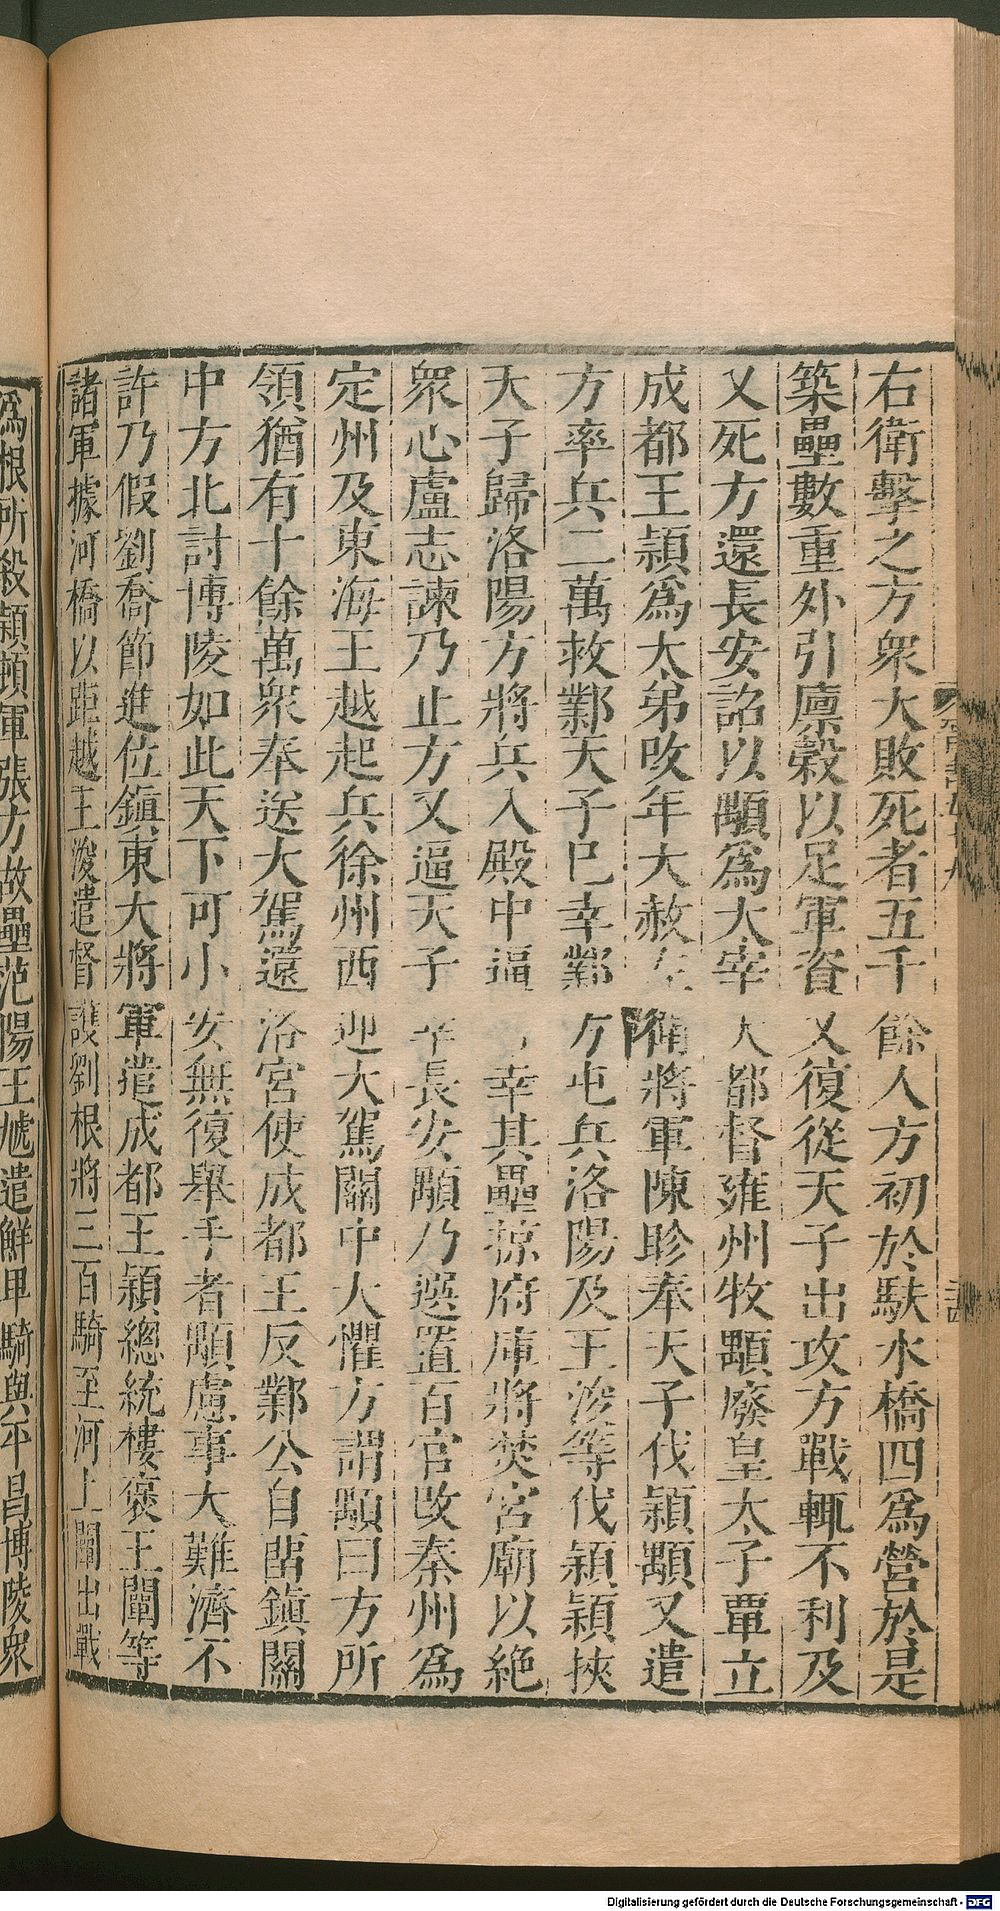 右衛擊之方衆大敗死者五千餘人方初於馱水橋西爲營於是
築壘數重外引廪穀以足軍資又復從天子出攻方戰輒不利及
乂死方還長安詔以顒爲大宰大都督雍州牧顒廢皇太子覃立
成都王穎爲太弟改年大赦左衛將軍陳眕奉天子伐穎顒又遣
方率兵二萬救鄴天子已幸鄴方屯兵洛陽及王浚等伐穎穎挾
天子歸洛陽方將兵入殿中逼幸其壘掠府庫將焚宮廟以絶
衆心盧志諫乃止方又逼天子幸長安顒乃選置百官改秦州爲
定州及東海王越起兵徐州西迎大駕關中大懼方謂顒曰方所
領猶有十餘萬衆奉送大駕還洛宮使成都王反鄴公自畱鎭關
中方北討博陵如此天下可小安無復舉手者顒慮事大難濟不
許乃假劉喬節進位鎭東大將軍遣成都王穎總統樓褒王闡等
諸軍據河橋以距越王浚遣督護劉根將三百騎至河上闡出戰
爲根所殺穎頓軍張方故壘范陽王虓遣鮮卑騎與平昌博陵衆
Digitalisierung gefördert durch die Deutsche Forschungsgemeinschaft - DFG